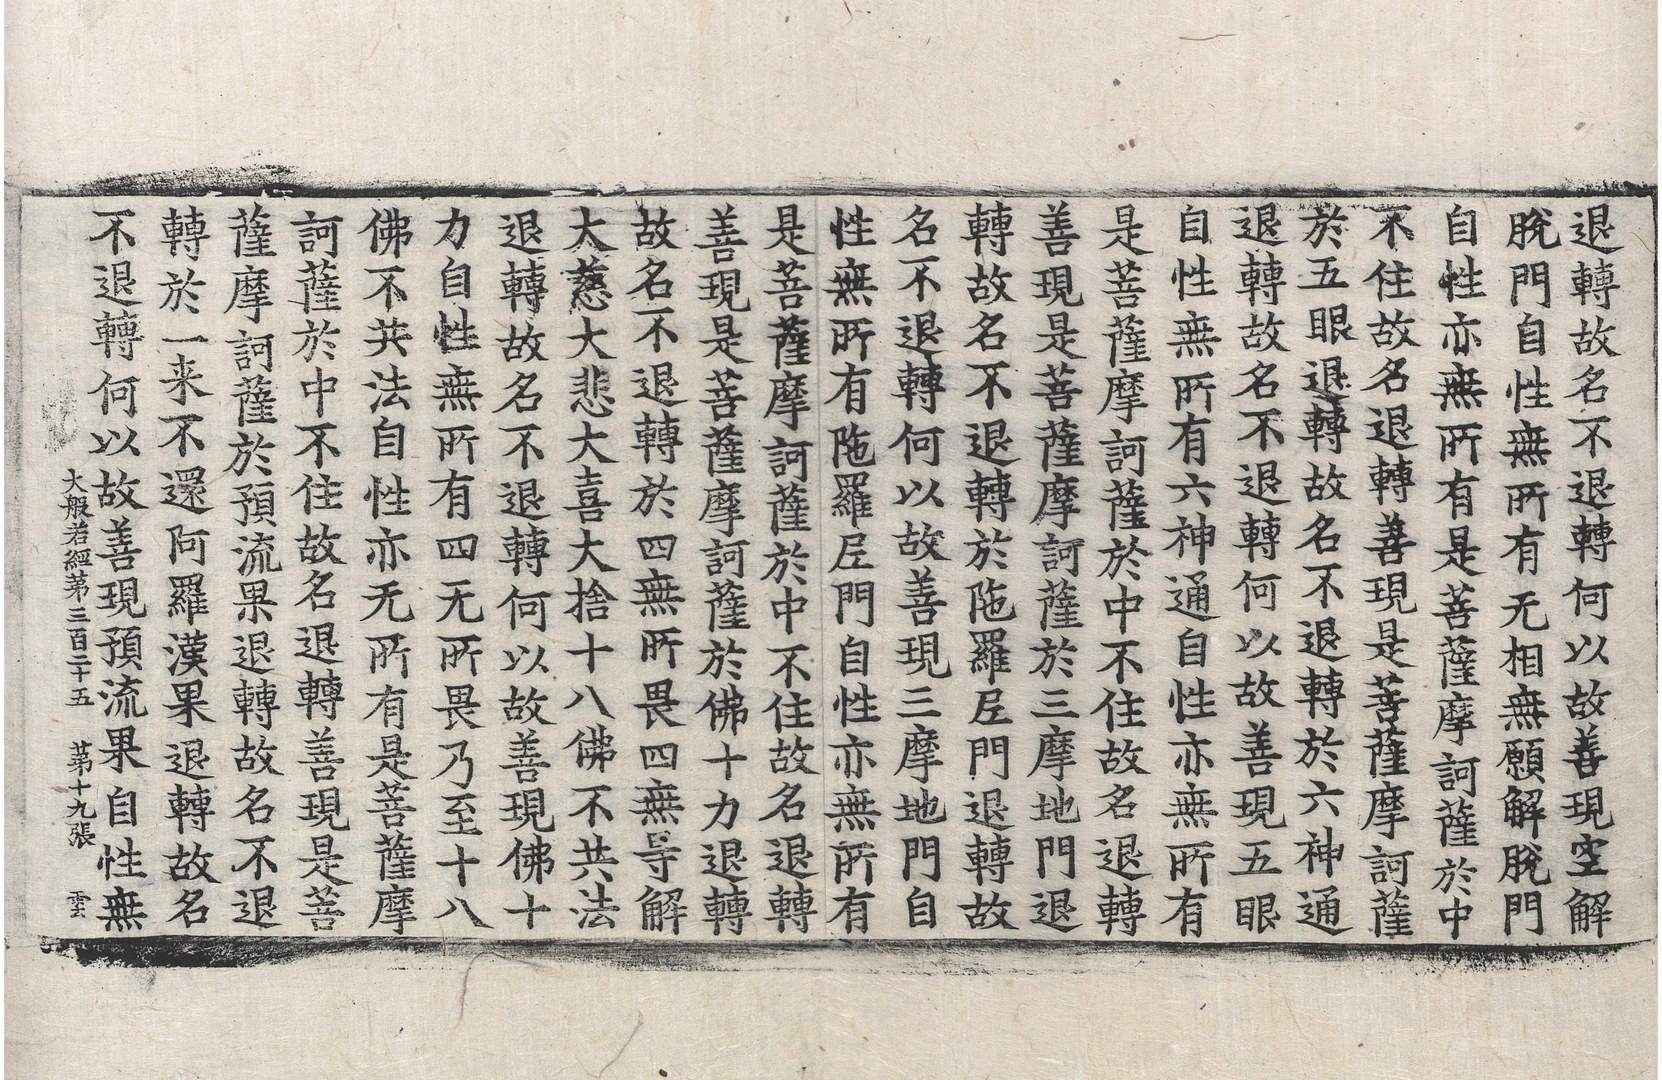 退轉故名不退轉何以故善現空解
脫門自性無所有无相無願解脫門
自性亦無所有是菩薩摩訶薩於中
不住故名退轉善現是菩薩摩訶薩
於五眼退轉故名不退轉於六神通
退轉故名不退轉何以故善現五眼
自性無所有六神通自性亦無所有
是菩薩摩訶薩於中不住故名退轉
善現是菩薩摩訶薩於三摩地門退
轉故名不退轉於陁羅尼門退轉故
名不退轉何以故善現三摩地門自
性無所有陁羅尼門自性亦無所有
是菩薩摩訶薩於中不住故名退轉
善現是菩薩摩訶薩於佛十力退轉
故名不退轉於四無所畏四無㝵解
大慈大悲大喜大捨十八佛不共法
退轉故名不退轉何以故善現佛十
力自性無所有四无所畏乃至十八
佛不共法自性亦无所有是菩薩摩
訶薩於中不住故名退轉善現是菩
薩摩訶薩於預流果退轉故名不退
轉於一来不還阿羅漢果退轉故名
不退轉何以故善現預流果自性無
大般若經第三百二十五 第十九張 雲